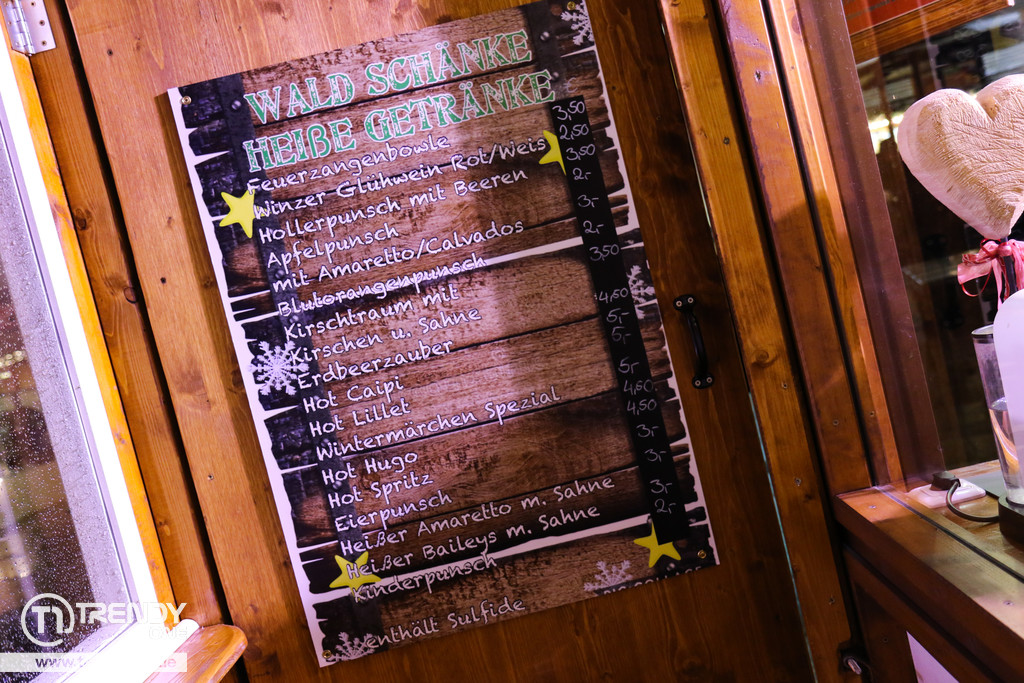 WALD SCHÄNKE
HEIßE GETRÄNKE
Feuerzangenbowle 3,50
Winzer-Glühwein Rot/Weis 2,50
Hollerpunsch mit Beeren 3,50
Apfelpunsch 2,-
mit Amaretto/Calvados 3,-
Blutorangenpunsch 2,-
Kirschtraum mit 3,50
Kirschen u. Sahne
Erdbeerzauber 4,50
Hot Caipi 5,-
Hot Lillet 5,-
Wintermärchen Spezial 5,-
Hot Hugo 4,50
Hot Spritz 4,50
Eierpunsch 3,-
Heißer Amaretto m. Sahne 3,-
Heißer Baileys m. Sahne 3,-
Kinderpunsch 2,-
enthält Sulfide
TRENDY
ONE